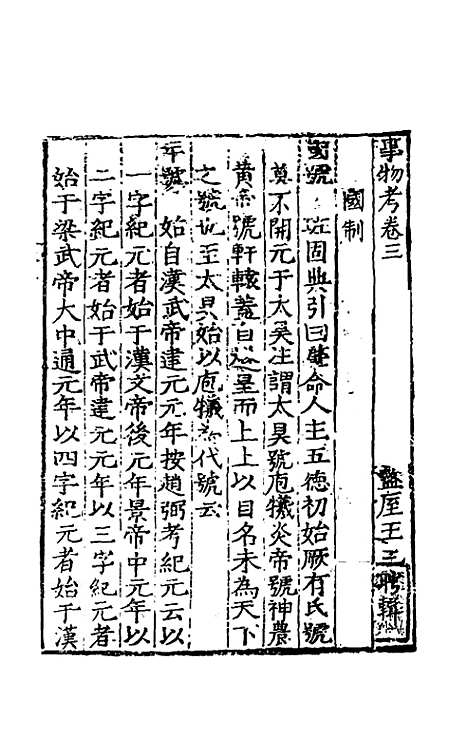 事物考卷三　盩厔王三聘輯
國制
國號　班固典引曰肇命人主五德初始厥有氏號
莫不開元于太昊注謂太昊號庖犧炎帝號神農
黄帝號軒轅蓋自茲而上上以目名未為天下
之號也至太昊始以庖犧為代號云
年號　始自漢武帝建元元年按趙弼考紀元云以
一字紀元者始于漢文帝後元年景帝中元年以
二字紀元者始于武帝建元元年以三字紀元者
始于梁武帝大中通元年以四字紀元者始于漢